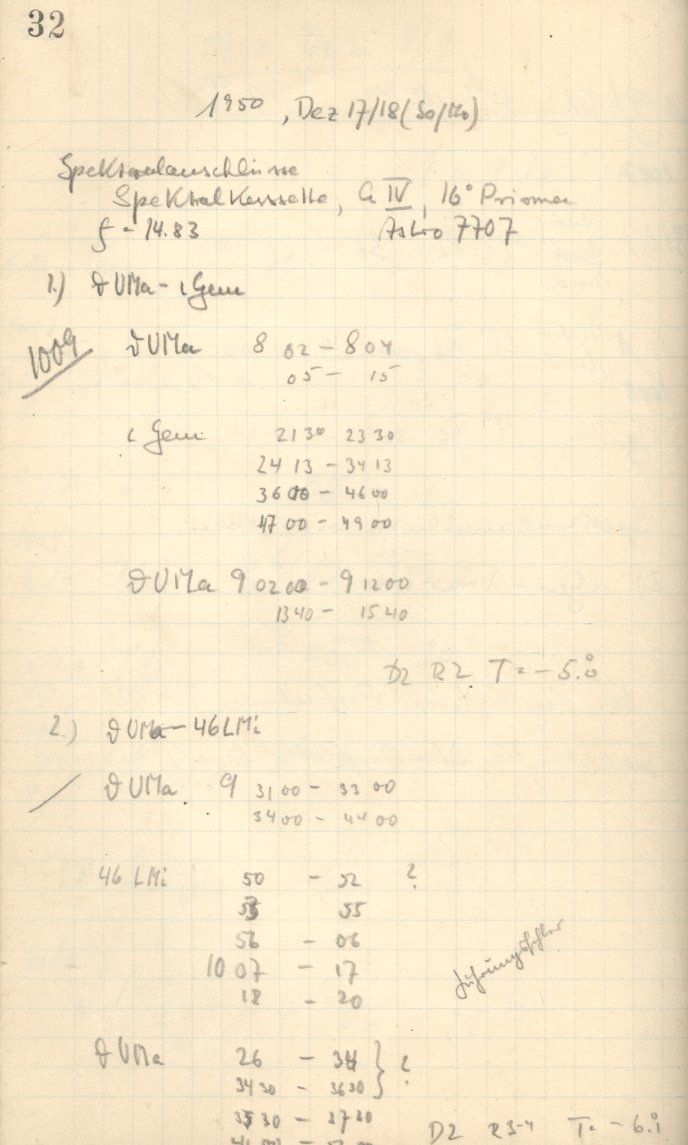 32
1950, Dez 17/18 (So/Mo)
Spektralanschlüsse
Spektralkassette, G IV, 16° Prismen
f = 14.83 Astro 7707
1.) ϑ UMa - ι Gem
1009
ϑ UMa 8 02 - 8 04
05 - 15
ι Gem 21 30 23 30
24 13 - 34 13
36 00 - 46 00
47 00 - 49 00
ϑ UMa 9 02 00 - 9 12 00
13 40 - 15 40
D2 R2 T = -5.°0
2.) ϑ UMa - 46 LMi
ϑ UMa 9 31 00 - 33 00
34 00 - 44 00
46 LMi 50 - 52 ?
53 55
56 - 06
10 07 - 17
Führungsfehler
18 - 20
ϑ UMa 26 - 34 } ?
34 30 - 36 30
35 30 - 37 30
D2 R3-4 T = -6.°1